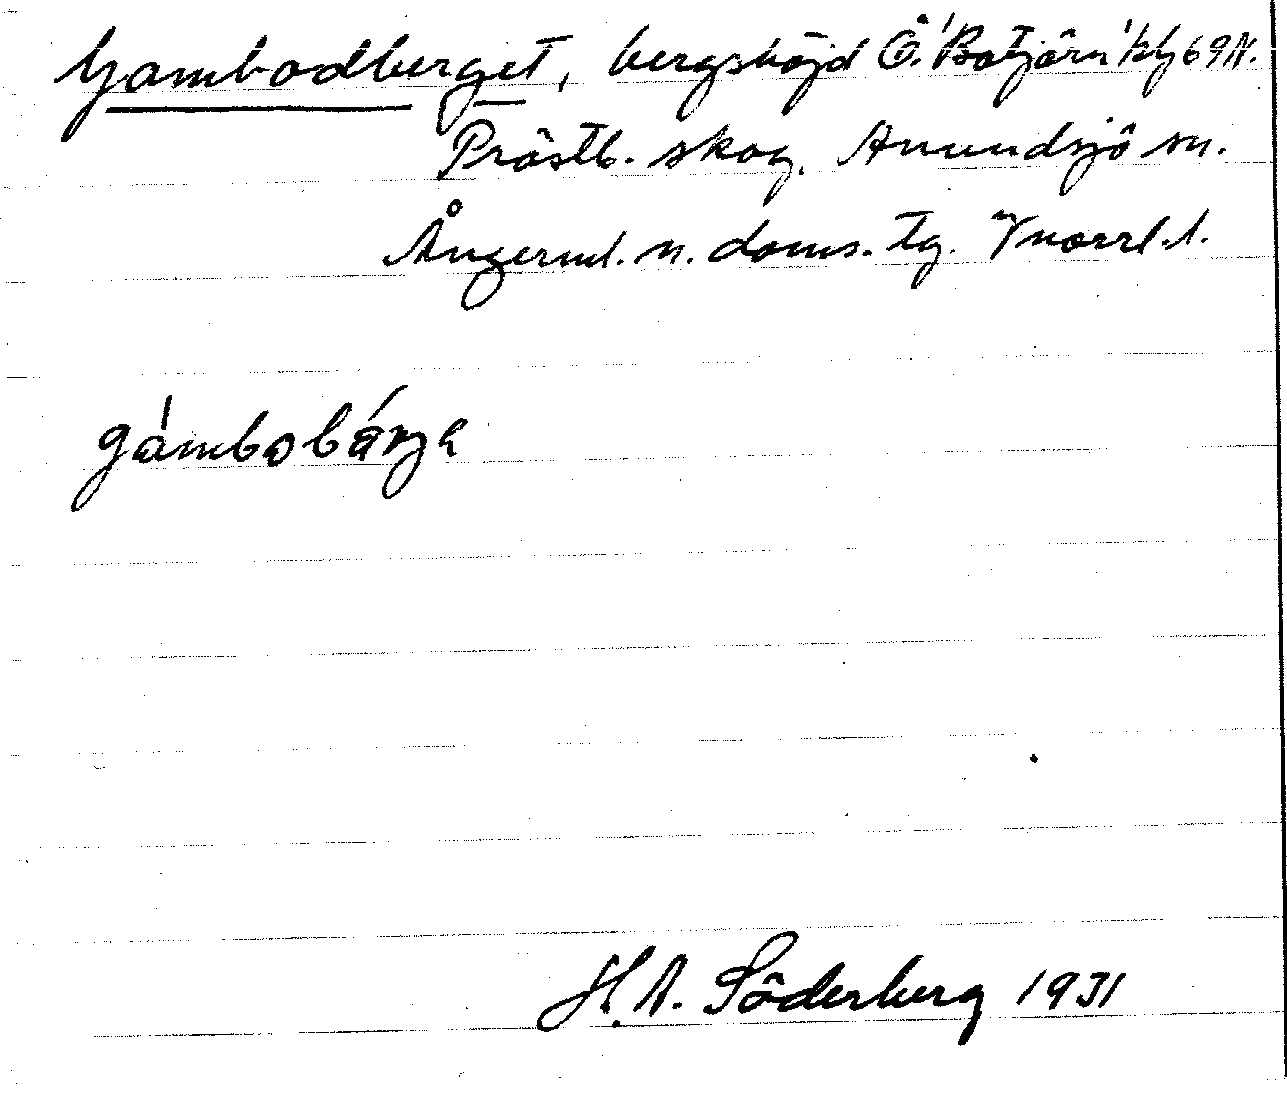 Gambodberget, bergshöjd Ö. 'Botjärn' kbl 69 N.
Prästb. skog. Anundsjö sn.
Ångerml. n. doms. tg. Vnorrl. l.
gámbobárʒɑ
H. N. Söderberg 1931